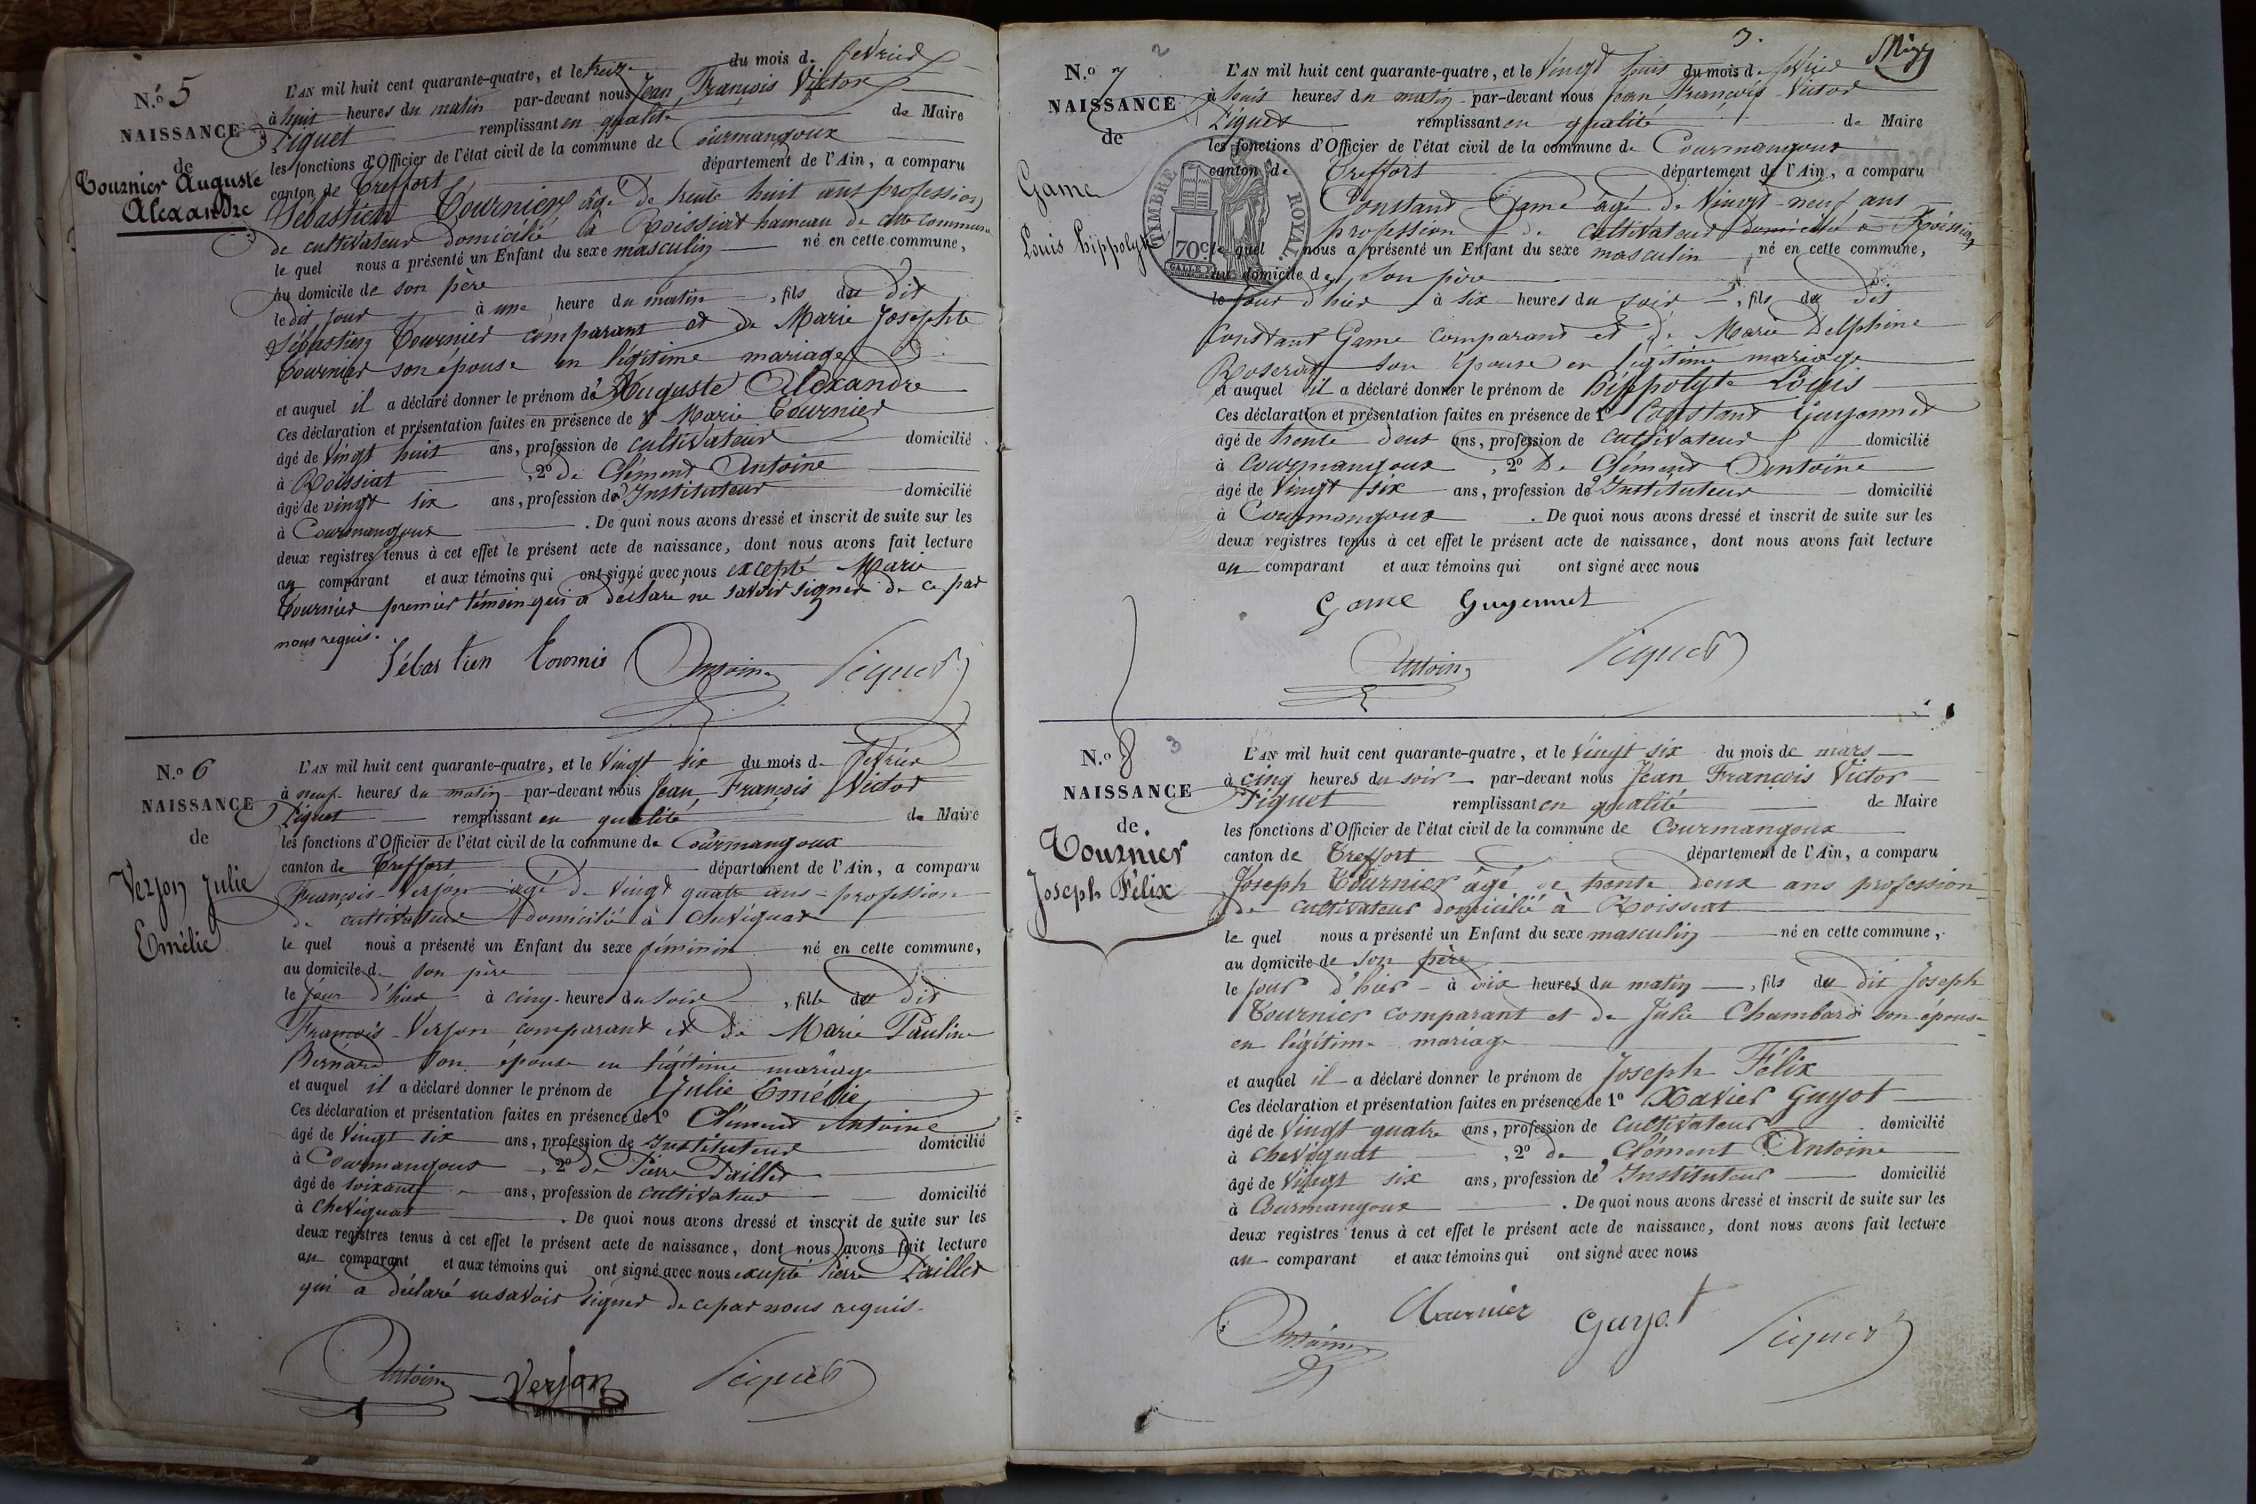 N.o 5
NAISSANCE
de
Tournier Auguste
Alexandre
L'AN mil huit cent quarante-quatre, et le treize du mois de février
à huit heures du matin par-devant nous Jean François Victor
Piquet remplissant en qualité de Maire
les fonctions d'Officier de l'état civil de la commune de Courmangoux
canton de Treffort département de l'Ain, a comparu
Sébastien Tournier âgé de trente huit ans profession
de cultivateur domicilié à Roissiat hameau de cette commune
le quel nous a présenté un Enfant du sexe masculin né en cette commune,
au domicile de son père
le dit jour à une heure du matin, fils du dit
Sébastien Tournier comparant et de Marie Josephte
Tournier son épouse en légitime mariage
et auquel il a déclaré donner le prénom d'Auguste Alexandre
Ces déclaration et présentation faites en présence de Marie Tournier
âgé de vingt huit ans, profession de cultivateur domicilié
à Roissiat, 2o de Clément Antoine
âgé de vingt six ans, profession d'Instituteur domicilié
à Courmangoux. De quoi nous avons dressé et inscrit de suite sur les
deux registres tenus à cet effet le présent acte de naissance, dont nous avons fait lecture
au comparant et aux témoins qui ont signé avec nous excepté Marie
Tournier premier témoin qui a déclaré ne savoir signer de ce par
nous requis.
Sébastien Tournie Antoine Piquet
N.o 6
NAISSANCE
de
Verjon Julie
Emélie
L'AN mil huit cent quarante-quatre, et le vingt six du mois de février
à neuf heures du matin par-devant nous Jean François Victor
Piquet remplissant en qualité de Maire
les fonctions d'Officier de l'état civil de la commune de Courmangoux
canton de Treffort département de l'Ain, a comparu
François Verjon âgé de vingt quatre ans profession
de cultivateur domicilié à Chevignat
le quel nous a présenté un Enfant du sexe féminin né en cette commune,
au domicile de son père
le jour d'hier à cinq heures du soir, fille du dit
François Verjon comparant et de Marie Pauline
Bernard son épouse en légitime mariage
et auquel il a déclaré donner le prénom de Julie Emélie
Ces déclaration et présentation faites en présence de 1o Clément Antoine
âgé de vingt six ans, profession de Instituteur domicilié
à Courmangoux, 2o de Pierre Paillet
âgé de soixante ans, profession de cultivateur domicilié
à Chevignat. De quoi nous avons dressé et inscrit de suite sur les
deux registres tenus à cet effet le présent acte de naissance, dont nous avons fait lecture
au comparant et aux témoins qui ont signé avec nous excepté Pierre Paillet
qui a déclaré ne savoir signer de ce par nous requis.
Antoine Verjon Piquet
3.
N.o 7 2
NAISSANCE
de
Game
Louis hippolyte
TIMBRE ROYAL
70c
L'AN mil huit cent quarante-quatre, et le vingt huit du mois de février
à huit heures du matin par-devant nous Jean François Victor
Piquet remplissant en qualité de Maire
les fonctions d'Officier de l'état civil de la commune de Courmangoux
canton de Treffort département de l'Ain, a comparu
Constant Game âgé de vingt-neuf ans
profession de cultivateur domicilié à Roissiat
le quel nous a présenté un Enfant du sexe masculin né en cette commune,
au domicile de son père
le jour d'hier à six heures du soir, fils du dit
Constant Game comparant et de Marie Delphine
son épouse en légitime mariage
et auquel il a déclaré donner le prénom de hippolyte Louis
Ces déclaration et présentation faites en présence de 1o Constant Guyonnet
âgé de trente deux ans, profession de cultivateur domicilié
à Courmangoux, 2o De Clément Antoine
âgé de vingt six ans, profession d'Instituteur domicilié
à Courmangoux. De quoi nous avons dressé et inscrit de suite sur les
deux registres tenus à cet effet le présent acte de naissance, dont nous avons fait lecture
au comparant et aux témoins qui ont signé avec nous
Game Guyennet
Antoine Piquet
N.o 8 3
NAISSANCE
de
Tournier
Joseph Félix
L'AN mil huit cent quarante-quatre, et le vingt six du mois de mars
à cinq heures du soir par-devant nous Jean François Victor
Piquet remplissant en qualité de Maire
les fonctions d'Officier de l'état civil de la commune de Courmangoux
canton de Treffort département de l'Ain, a comparu
Joseph Tournier âgé de trente deux ans profession
de cultivateur domicilié à Roissiat
le quel nous a présenté un Enfant du sexe masculin né en cette commune,
au domicile de son père
le jour d'hier à dix heures du matin, fils du dit Joseph
Tournier comparant et de Julie Chambard son épouse
en légitime mariage
et auquel il a déclaré donner le prénom de Joseph Félix
Ces déclaration et présentation faites en présence de 1o Xavier Guyot
âgé de vingt quatre ans, profession de cultivateur domicilié
à Chevignat, 2o de Clément Antoine
âgé de vingt six ans, profession d'Instituteur domicilié
à Courmangoux. De quoi nous avons dressé et inscrit de suite sur les
deux registres tenus à cet effet le présent acte de naissance, dont nous avons fait lecture
au comparant et aux témoins qui ont signé avec nous
Antoine Tournier Guyot Piquet